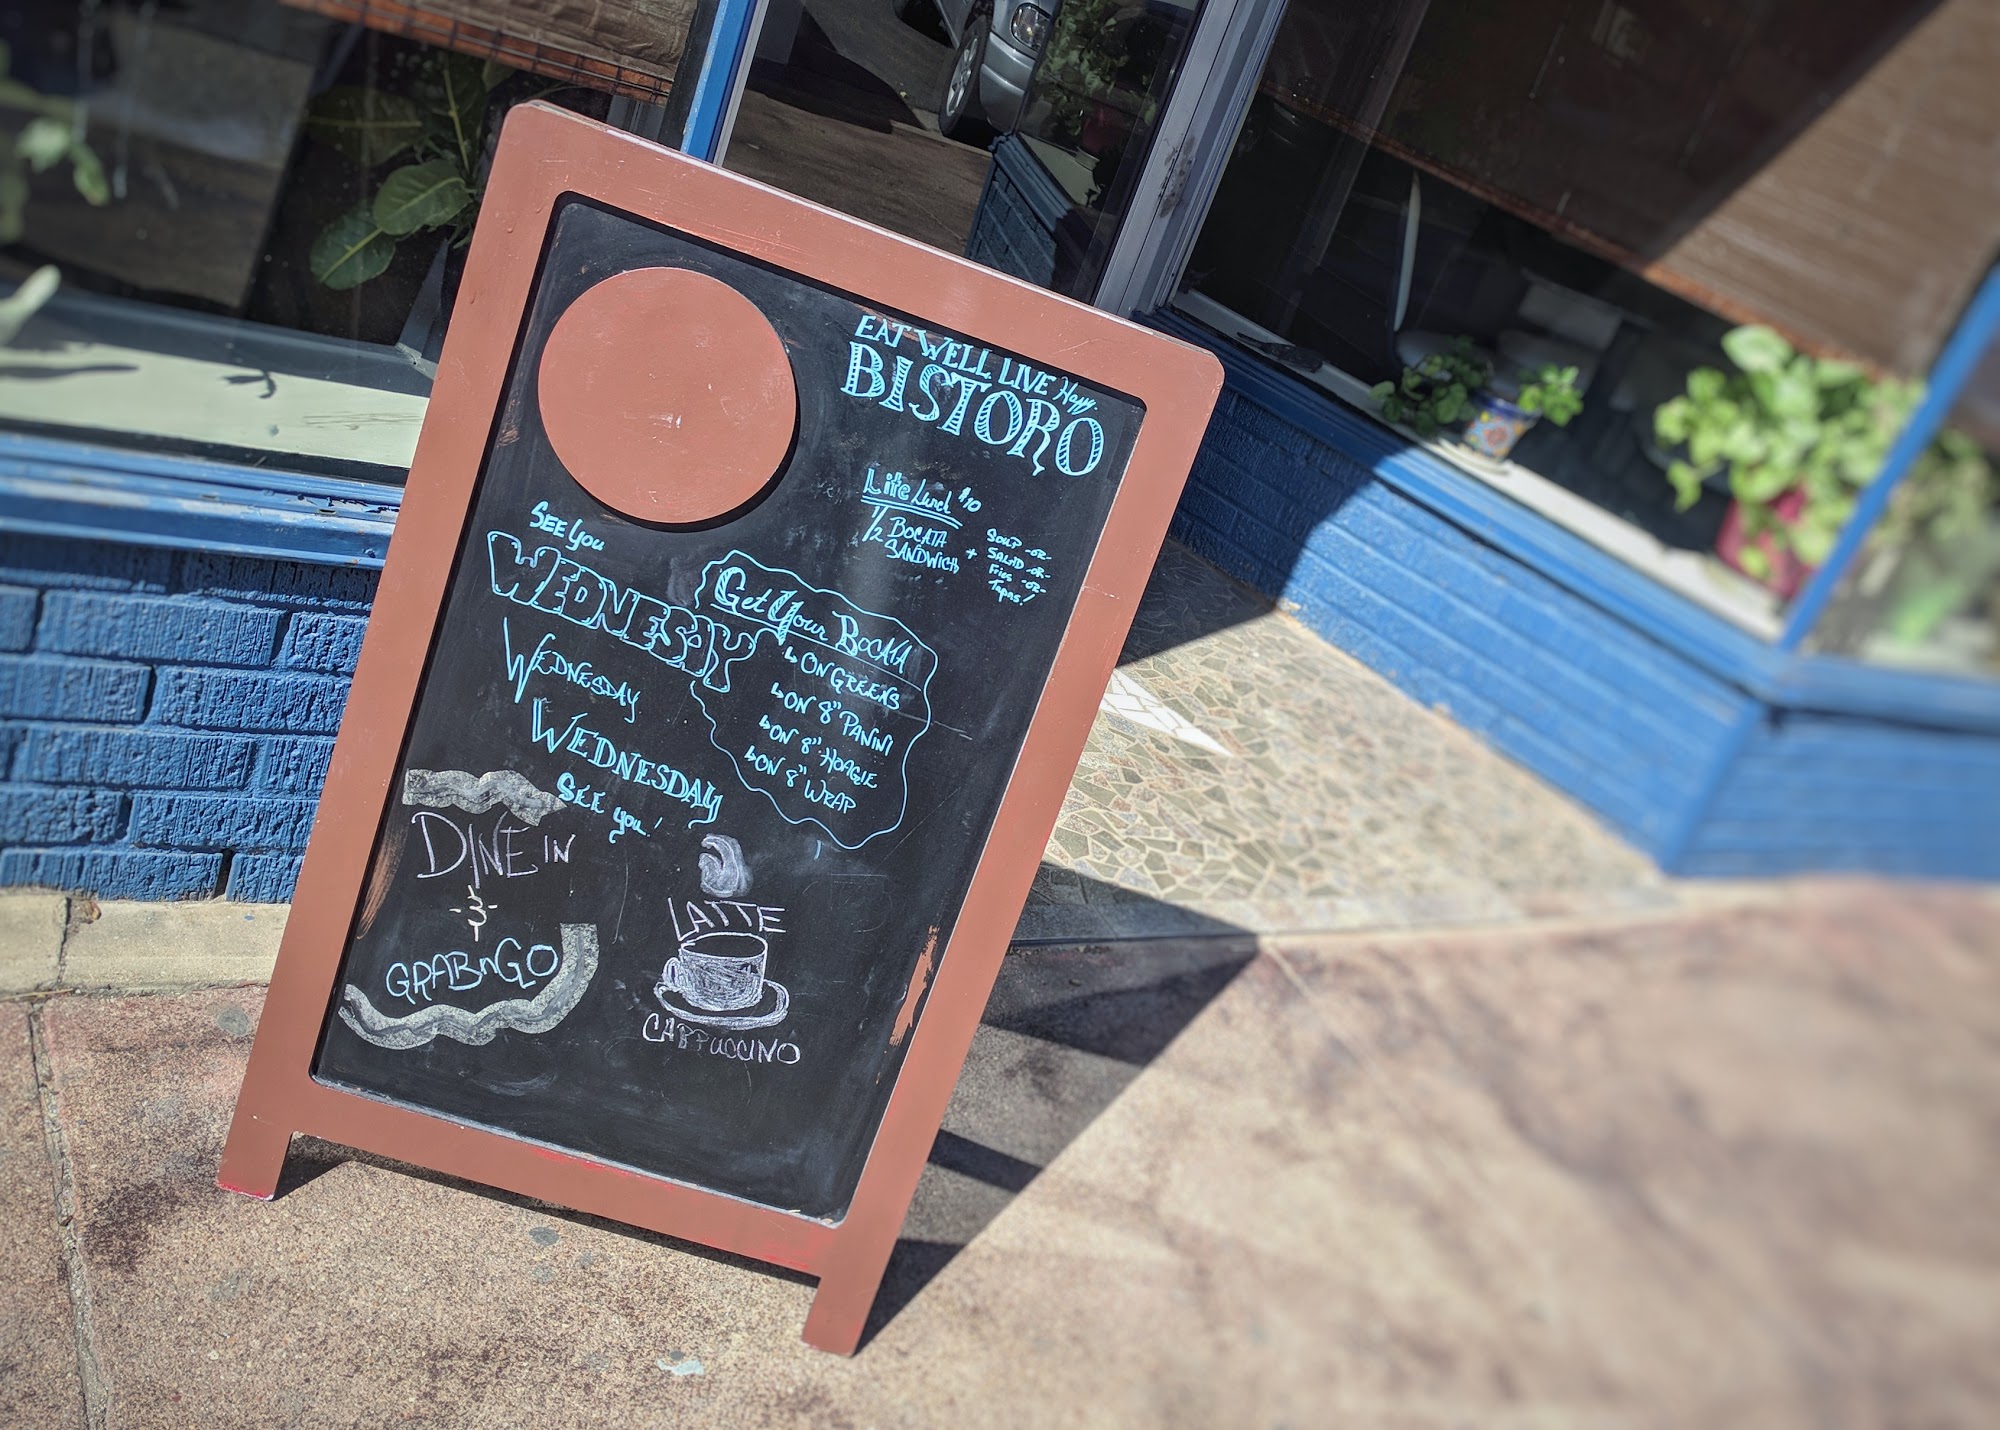 EAT WELL LIVE Happy.
BISTORO
Lite Lunch $10
1/2 BOCATA SANDWICH + SOUP -OR-
SALAD -OR-
Fries -OR-
Tapas!
SEE you
WEDNESDAY
WEDNESDAY
WEDNESDAY
SEE you!
Get Your BOCATA
↳ ON GREENS
↳ ON 8" PANINI
↳ ON 8" HOAGIE
↳ ON 8" WRAP
DINE IN
GRAB n GO
LATTE
CAPPUCCINO